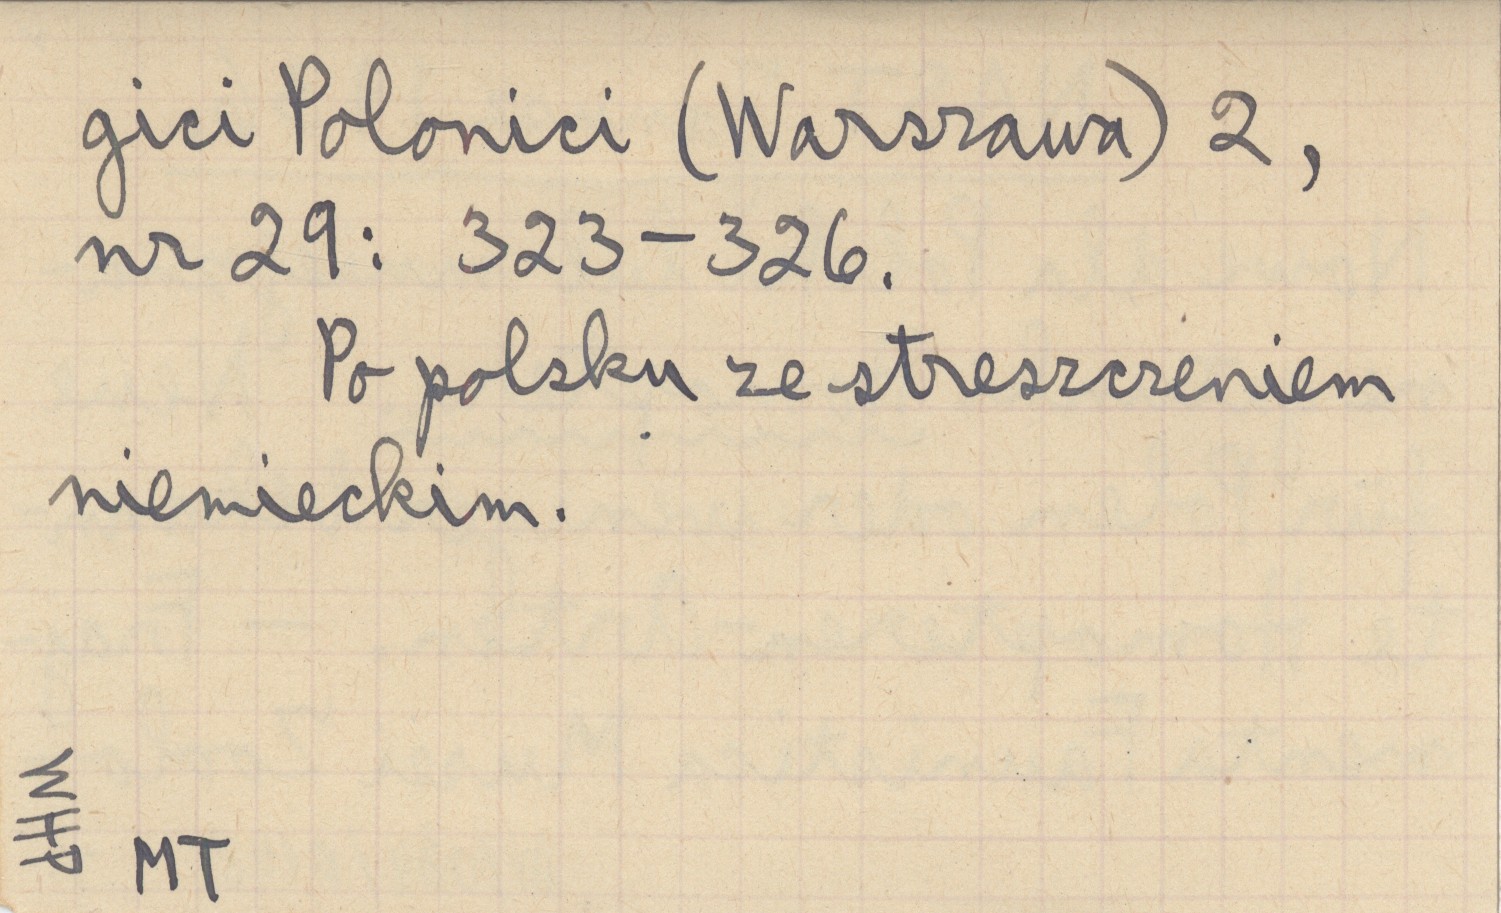 gici Polonici (Warszawa) 2,
nr 29: 323–326.
Po polsku ze streszczeniem
niemieckim.
WHP
MT